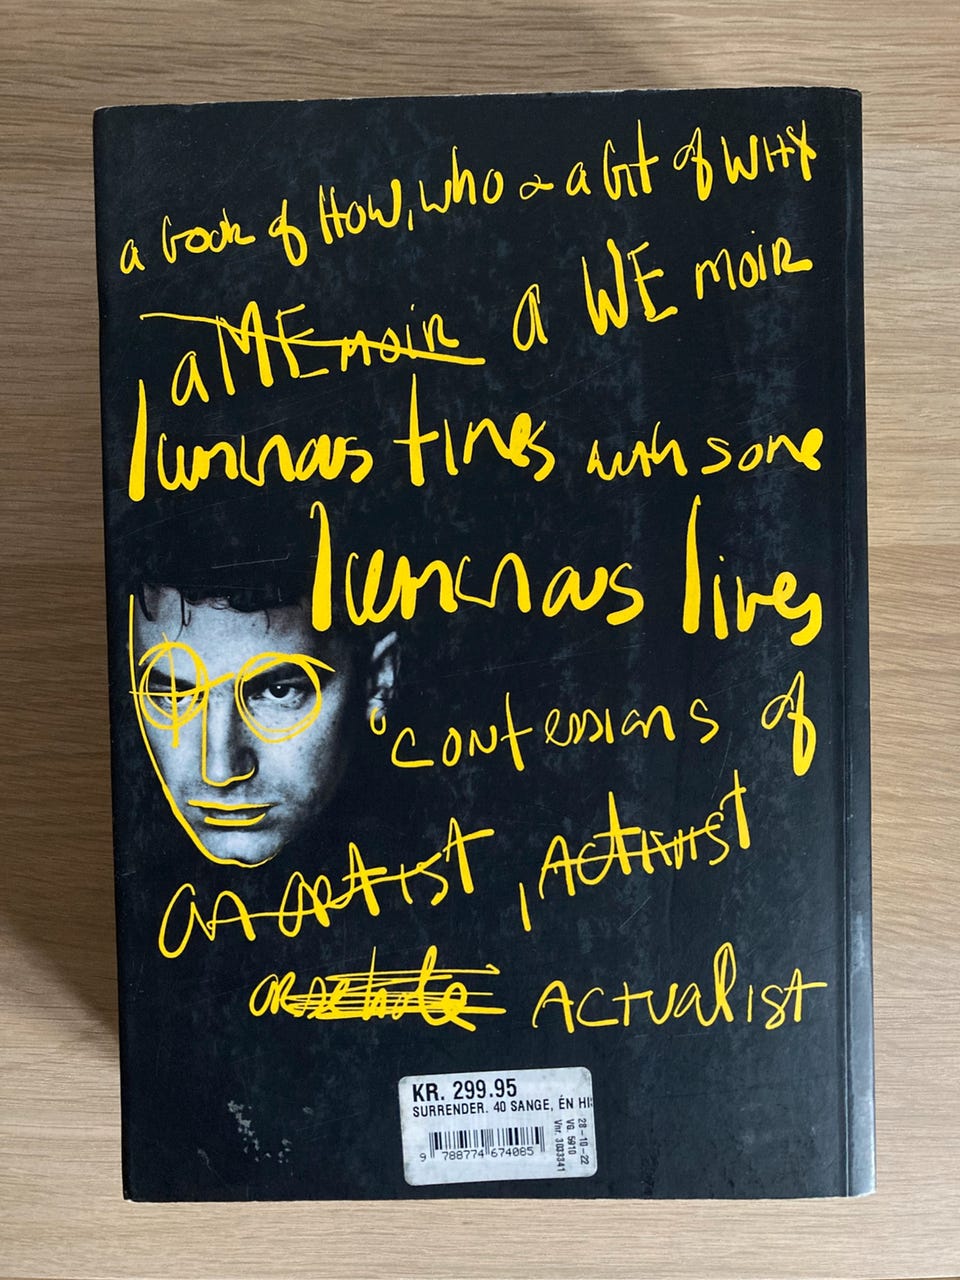 a book of HOW, who & a bit of WHY
a MEmoir a WE moir
luminous times with some
luminous lives
'confessions of
an artist, Activist
arsehole ACTUALIST
KR. 299.95
SURRENDER. 40 SANGE, ÉN HI
9 788774 674085
28-10-22
VG. 5910
Vnr. 3033341